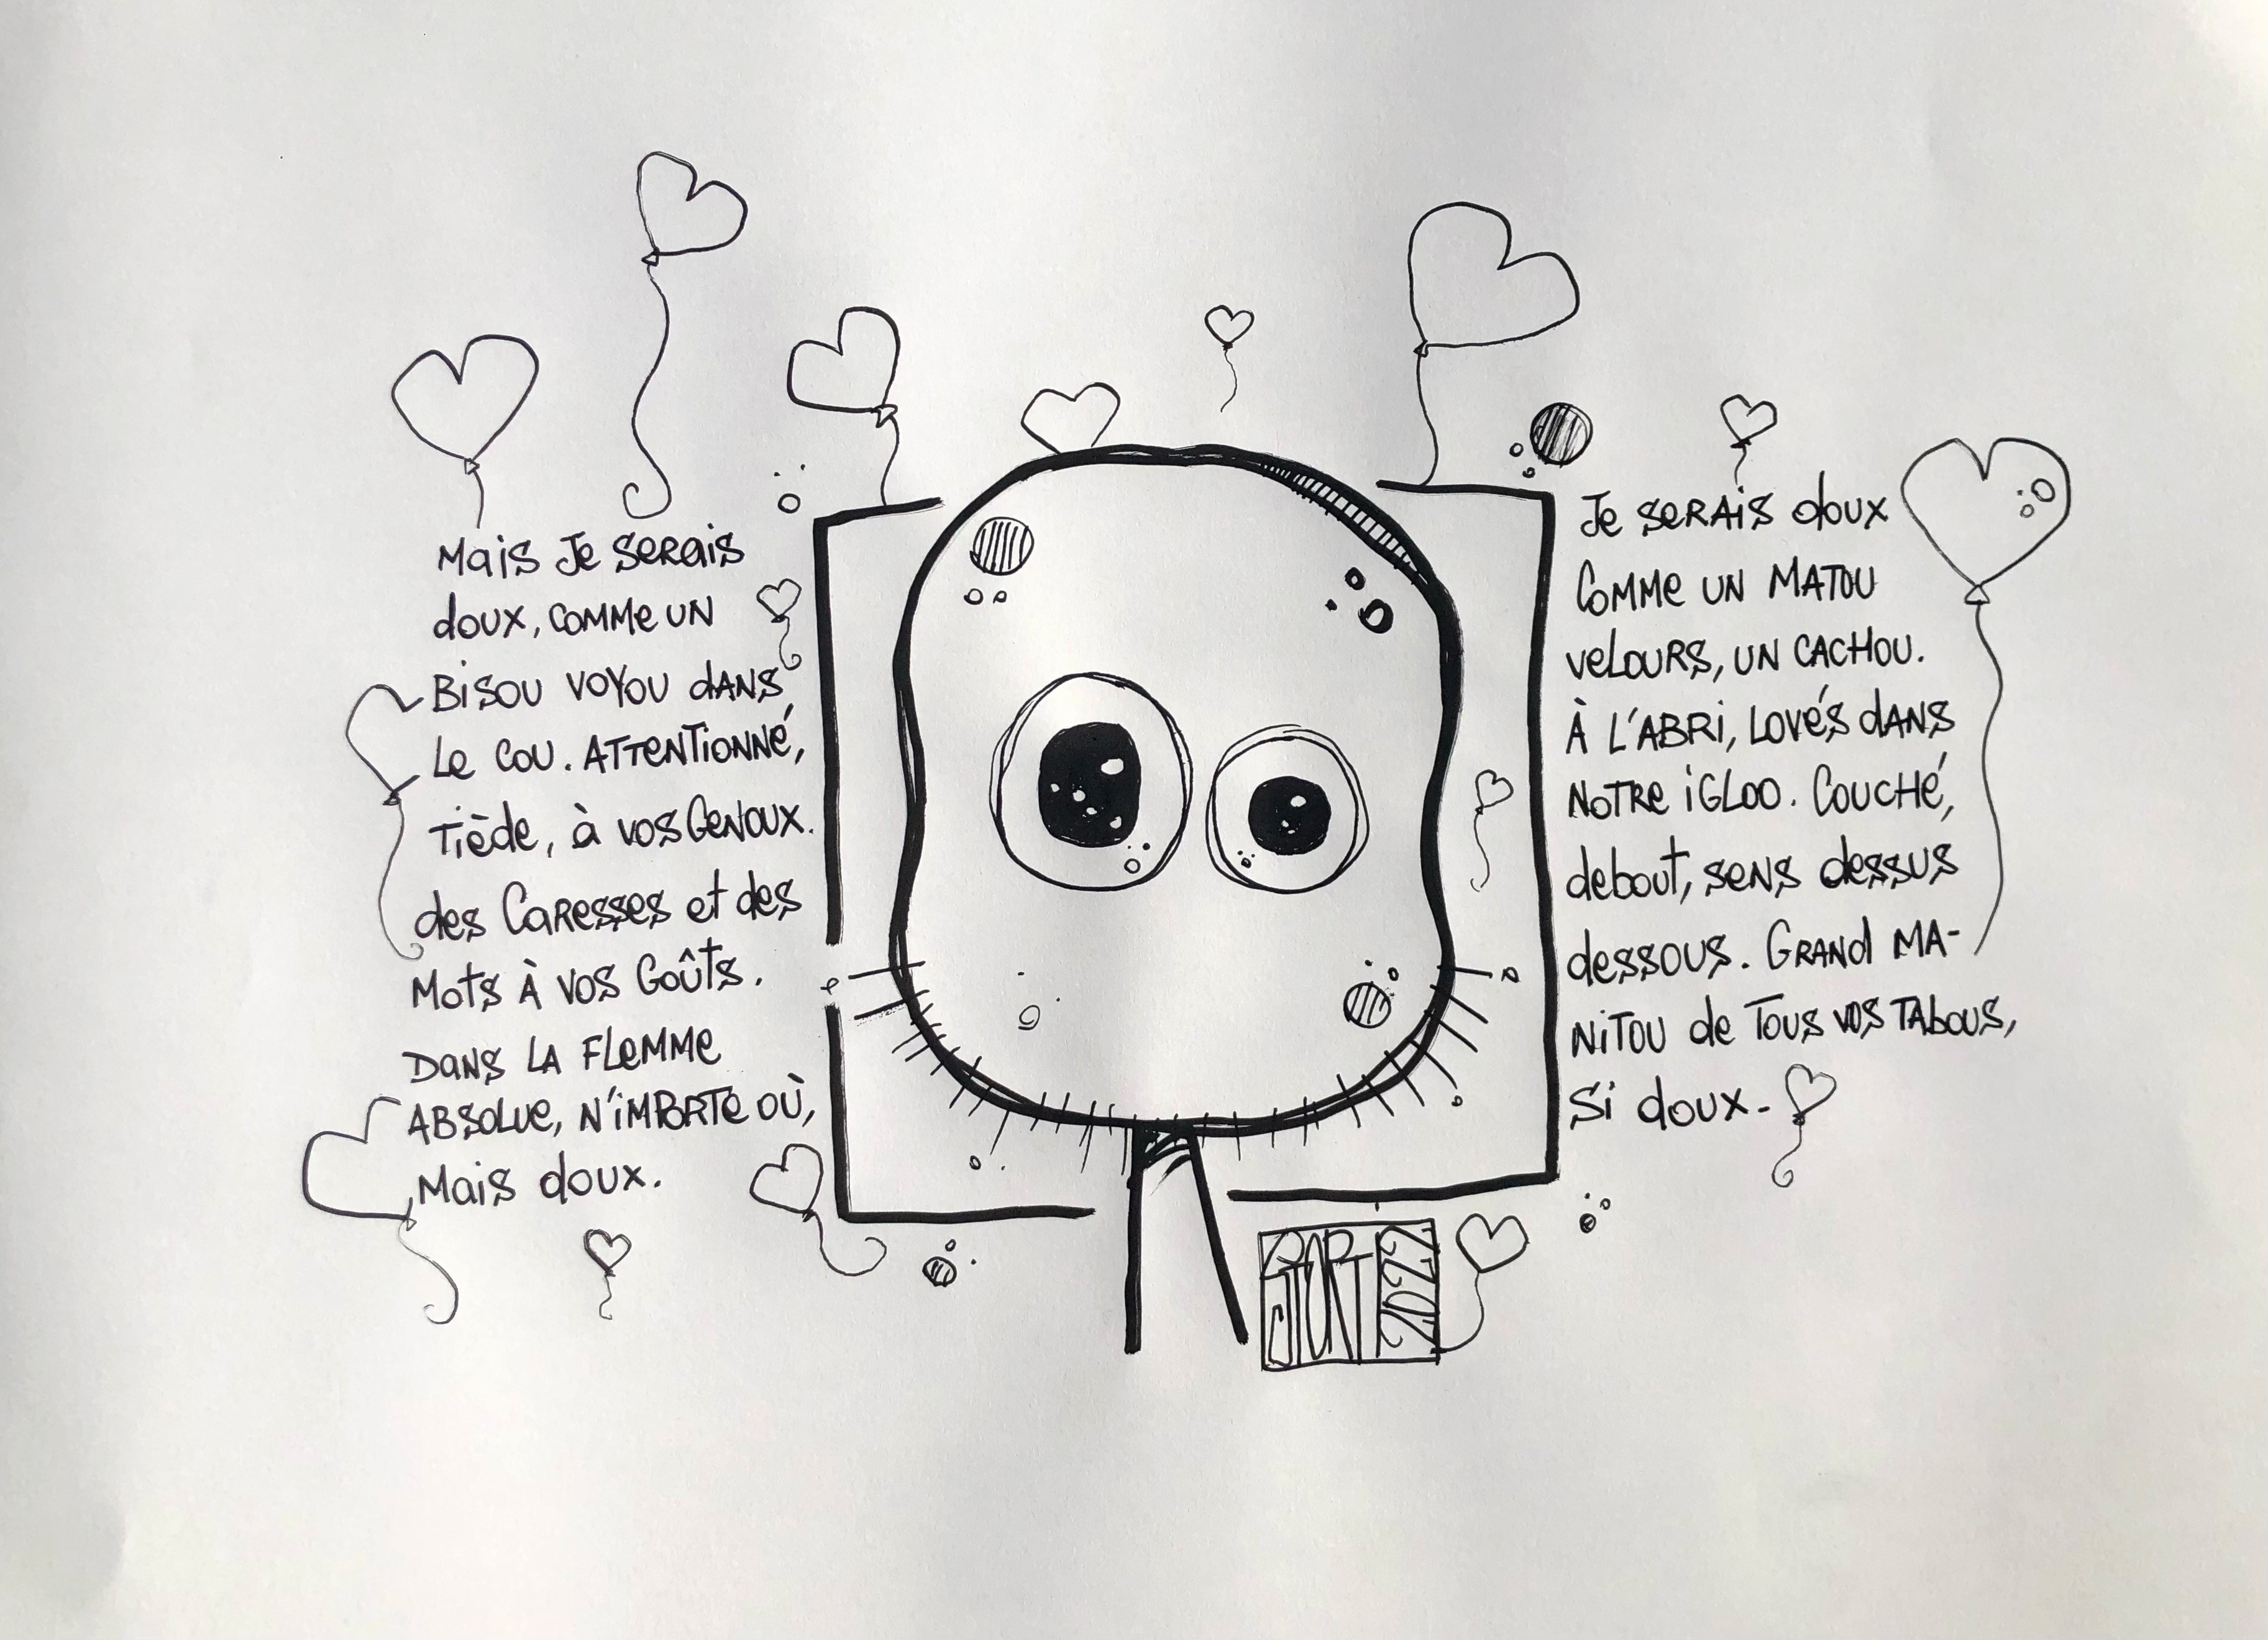 Mais Je serais
doux, comme un
Bisou voyou dans
le cou. Attentionné,
Tiède, à vos genoux.
des caresses et des
Mots à vos goûts.
Dans la flemme
absolue, n'importe où,
Mais doux.
Je serais doux
comme un matou
velours, un cachou.
À l'abri, lovés dans
notre igloo. Couché,
debout, sens dessus
dessous. Grand ma-
nitou de tous vos tabous,
Si doux-
2022